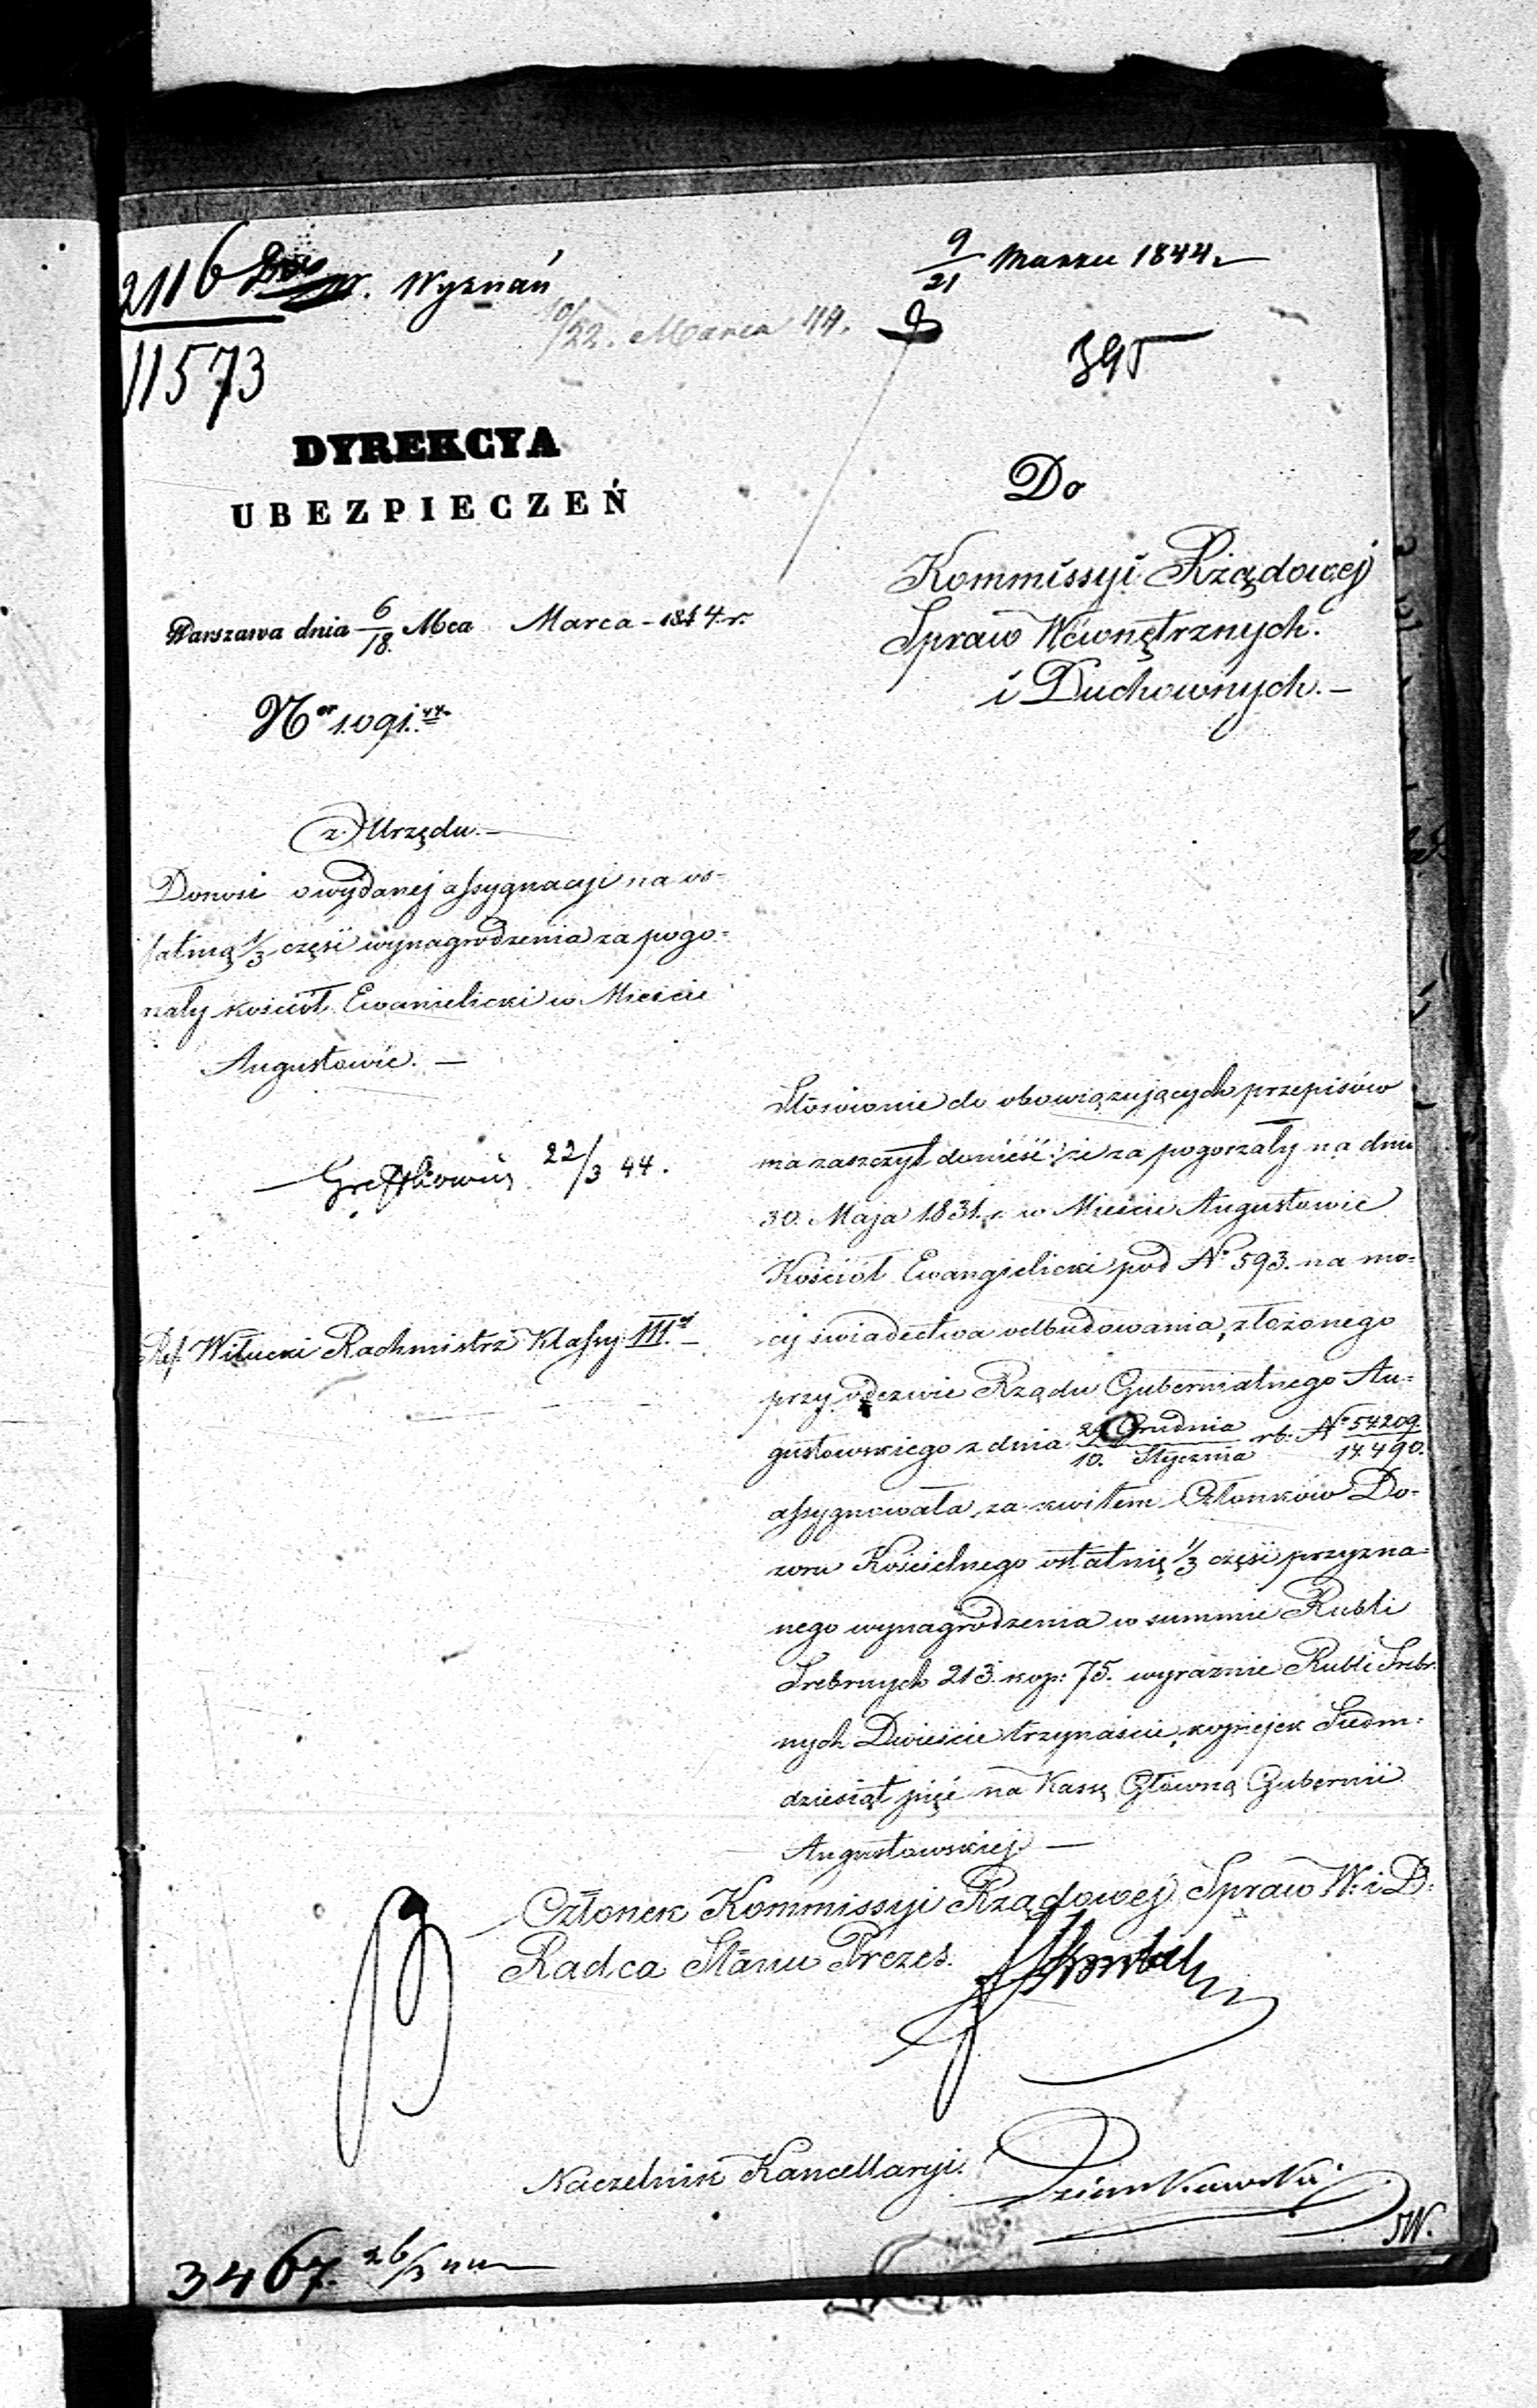 2116 Wyznań
11573
9/21 Marzu 1844
10/22. Marca 44.
395
DYREKCYA
UBEZPIECZEŃ
Warszawa dnia 6/18. Mca Marca - 1844 r.
Nor 1091.44
Do
Kommissyi Rządowej
Spraw Wewnętrznych
i Duchownych. -
z Urzędu. -
Donosi o wydanej assygnacyi na os-
tatnią 1/3 częsci wynagrodzenia za pogo-
rzały kościół Ewanielicki w Mieście
Augustowie. -
22/3 44.
Ref. Witucki Rachmistrz Klassy III.
Stósownie do obowiązujących przepisów
ma zaszczyt donieść: że za pogorzały na dniu
30. Maja 1831. r. w Mieście Augustowie
Kościół Ewangielicki pod No 593. na mo-
cy świadectwa odbudowania, złożonego
przy odezwie Rządu Gubernialnego Au-
gustowskiego z dnia Grudnia/10. Stycznia rb: No 54209./14490.
assygnowała, za kwitem Członków Do-
zoru Kościelnego ostatnię 1/3 części przyzna-
nego wynagrodzenia w summie Rubli
Srebrnych 213. kop: 75. wyraźnie Rubli Srebr-
nych Dwieście trzynaście, kopiejek Siedm-
dziesiąt pięć na Kassę Główną Gubernii
Augustowskiej. -
Członek Kommissyi Rządowej Spraw W. i D.
Radca Stanu Prezes.
Naczelnik Kancellaryi.
JW.
3467. 26/3